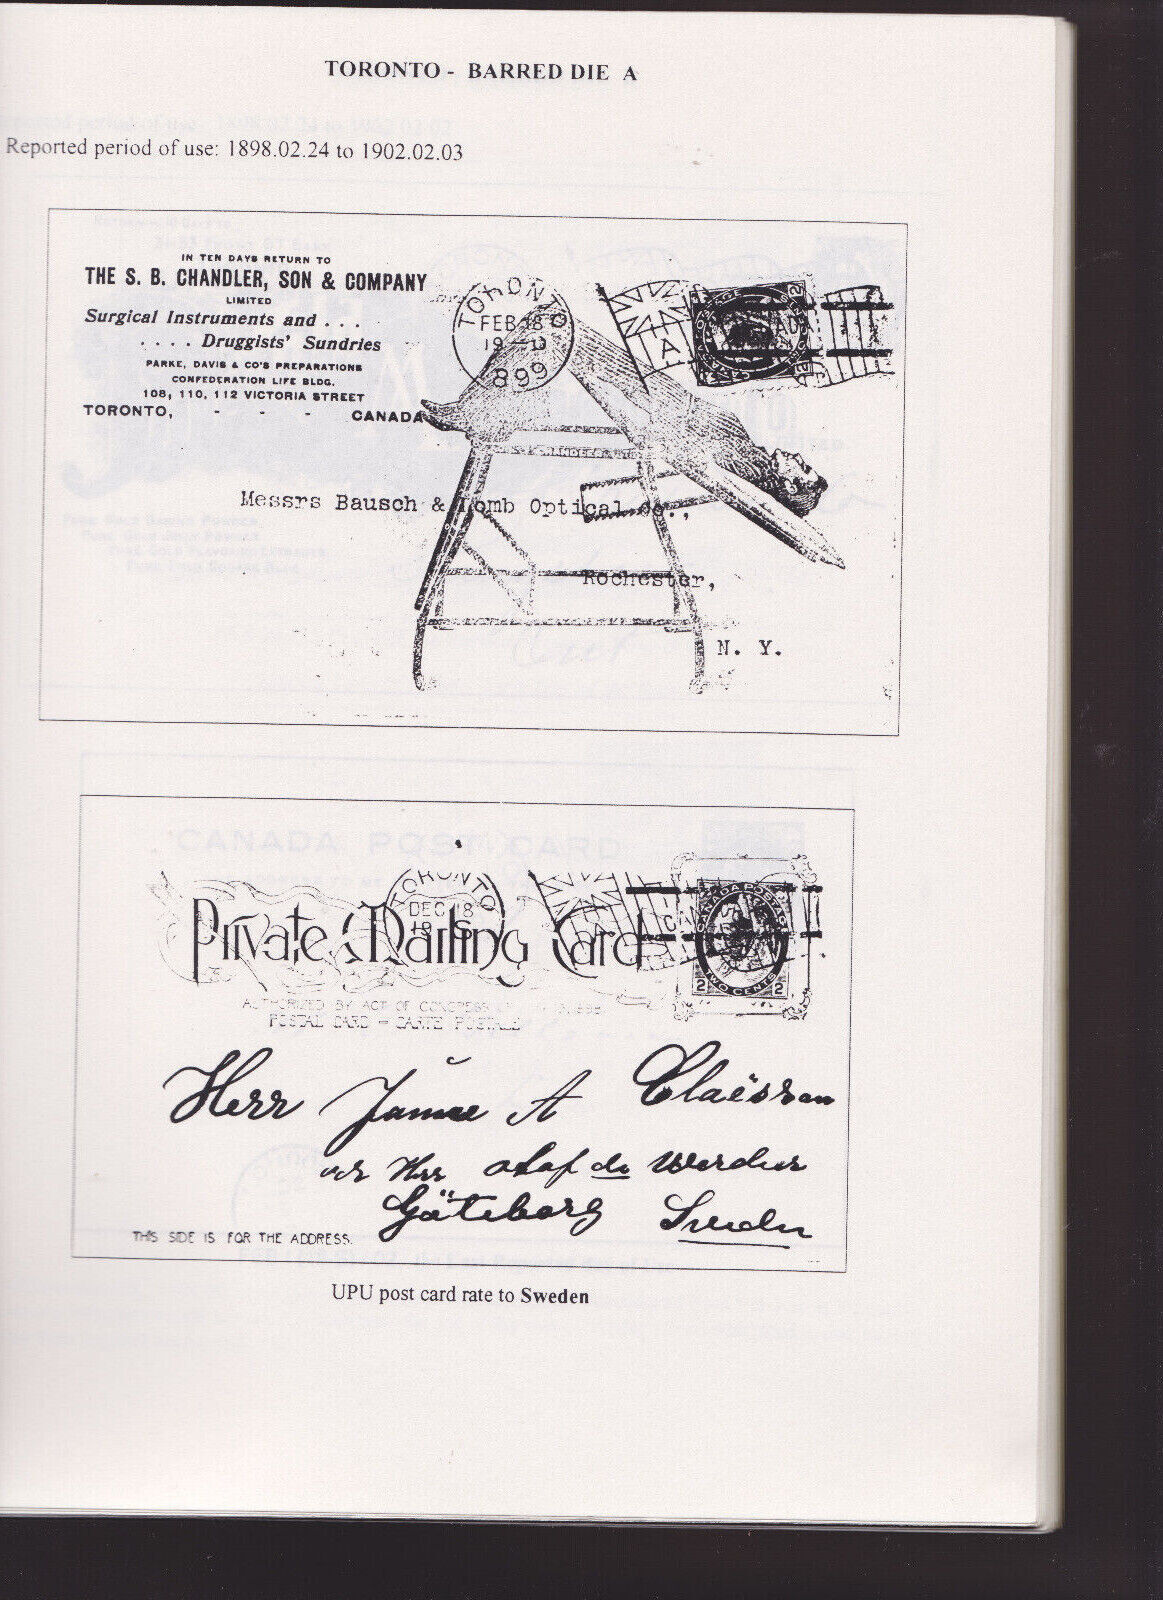 TORONTO - BARRED DIE A
Reported period of use: 1898.02.24 to 1902.02.03
IN TEN DAYS RETURN TO
THE S. B. CHANDLER, SON & COMPANY
LIMITED
Surgical Instruments and . . .
. . . . Druggists' Sundries
PARKE, DAVIS & CO'S PREPARATIONS
CONFEDERATION LIFE BLDG.
108, 110, 112 VICTORIA STREET
TORONTO, - - - CANADA
TORONTO
FEB 18
19 - 0
899
A
Messrs Bausch & Lomb Optical Co.,
Rochester,
N. Y.
TORONTO
DEC 18
Private Mailing Card
AUTHORIZED BY ACT OF CONGRESS
POSTAL CARD - CARTE POSTALE
CANADA POSTAGE
2 TWO CENTS 2
Herr A Claësson
Herr Olof de
Göteborg Sweden
THIS SIDE IS FOR THE ADDRESS.
UPU post card rate to Sweden